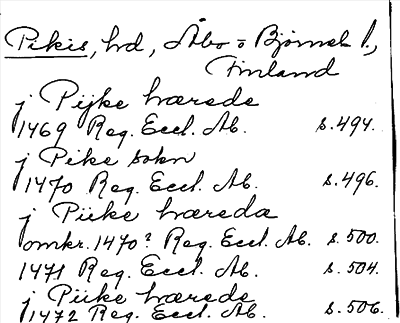 Pikis, hd, Åbo o Björneb l.,
Finland
j Pijke hærede
1469 Reg. Eccl. Ab. s. 494.
j Pike sokn
1470 Reg. Eccl. Ab. s. 496.
j Piike hæreda
omkr. 1470? Reg. Eccl. Ab. s. 500.
1471 Reg. Eccl. Ab. s. 504.
j Piike hærede
1472 Reg. Eccl. Ab. s. 506.